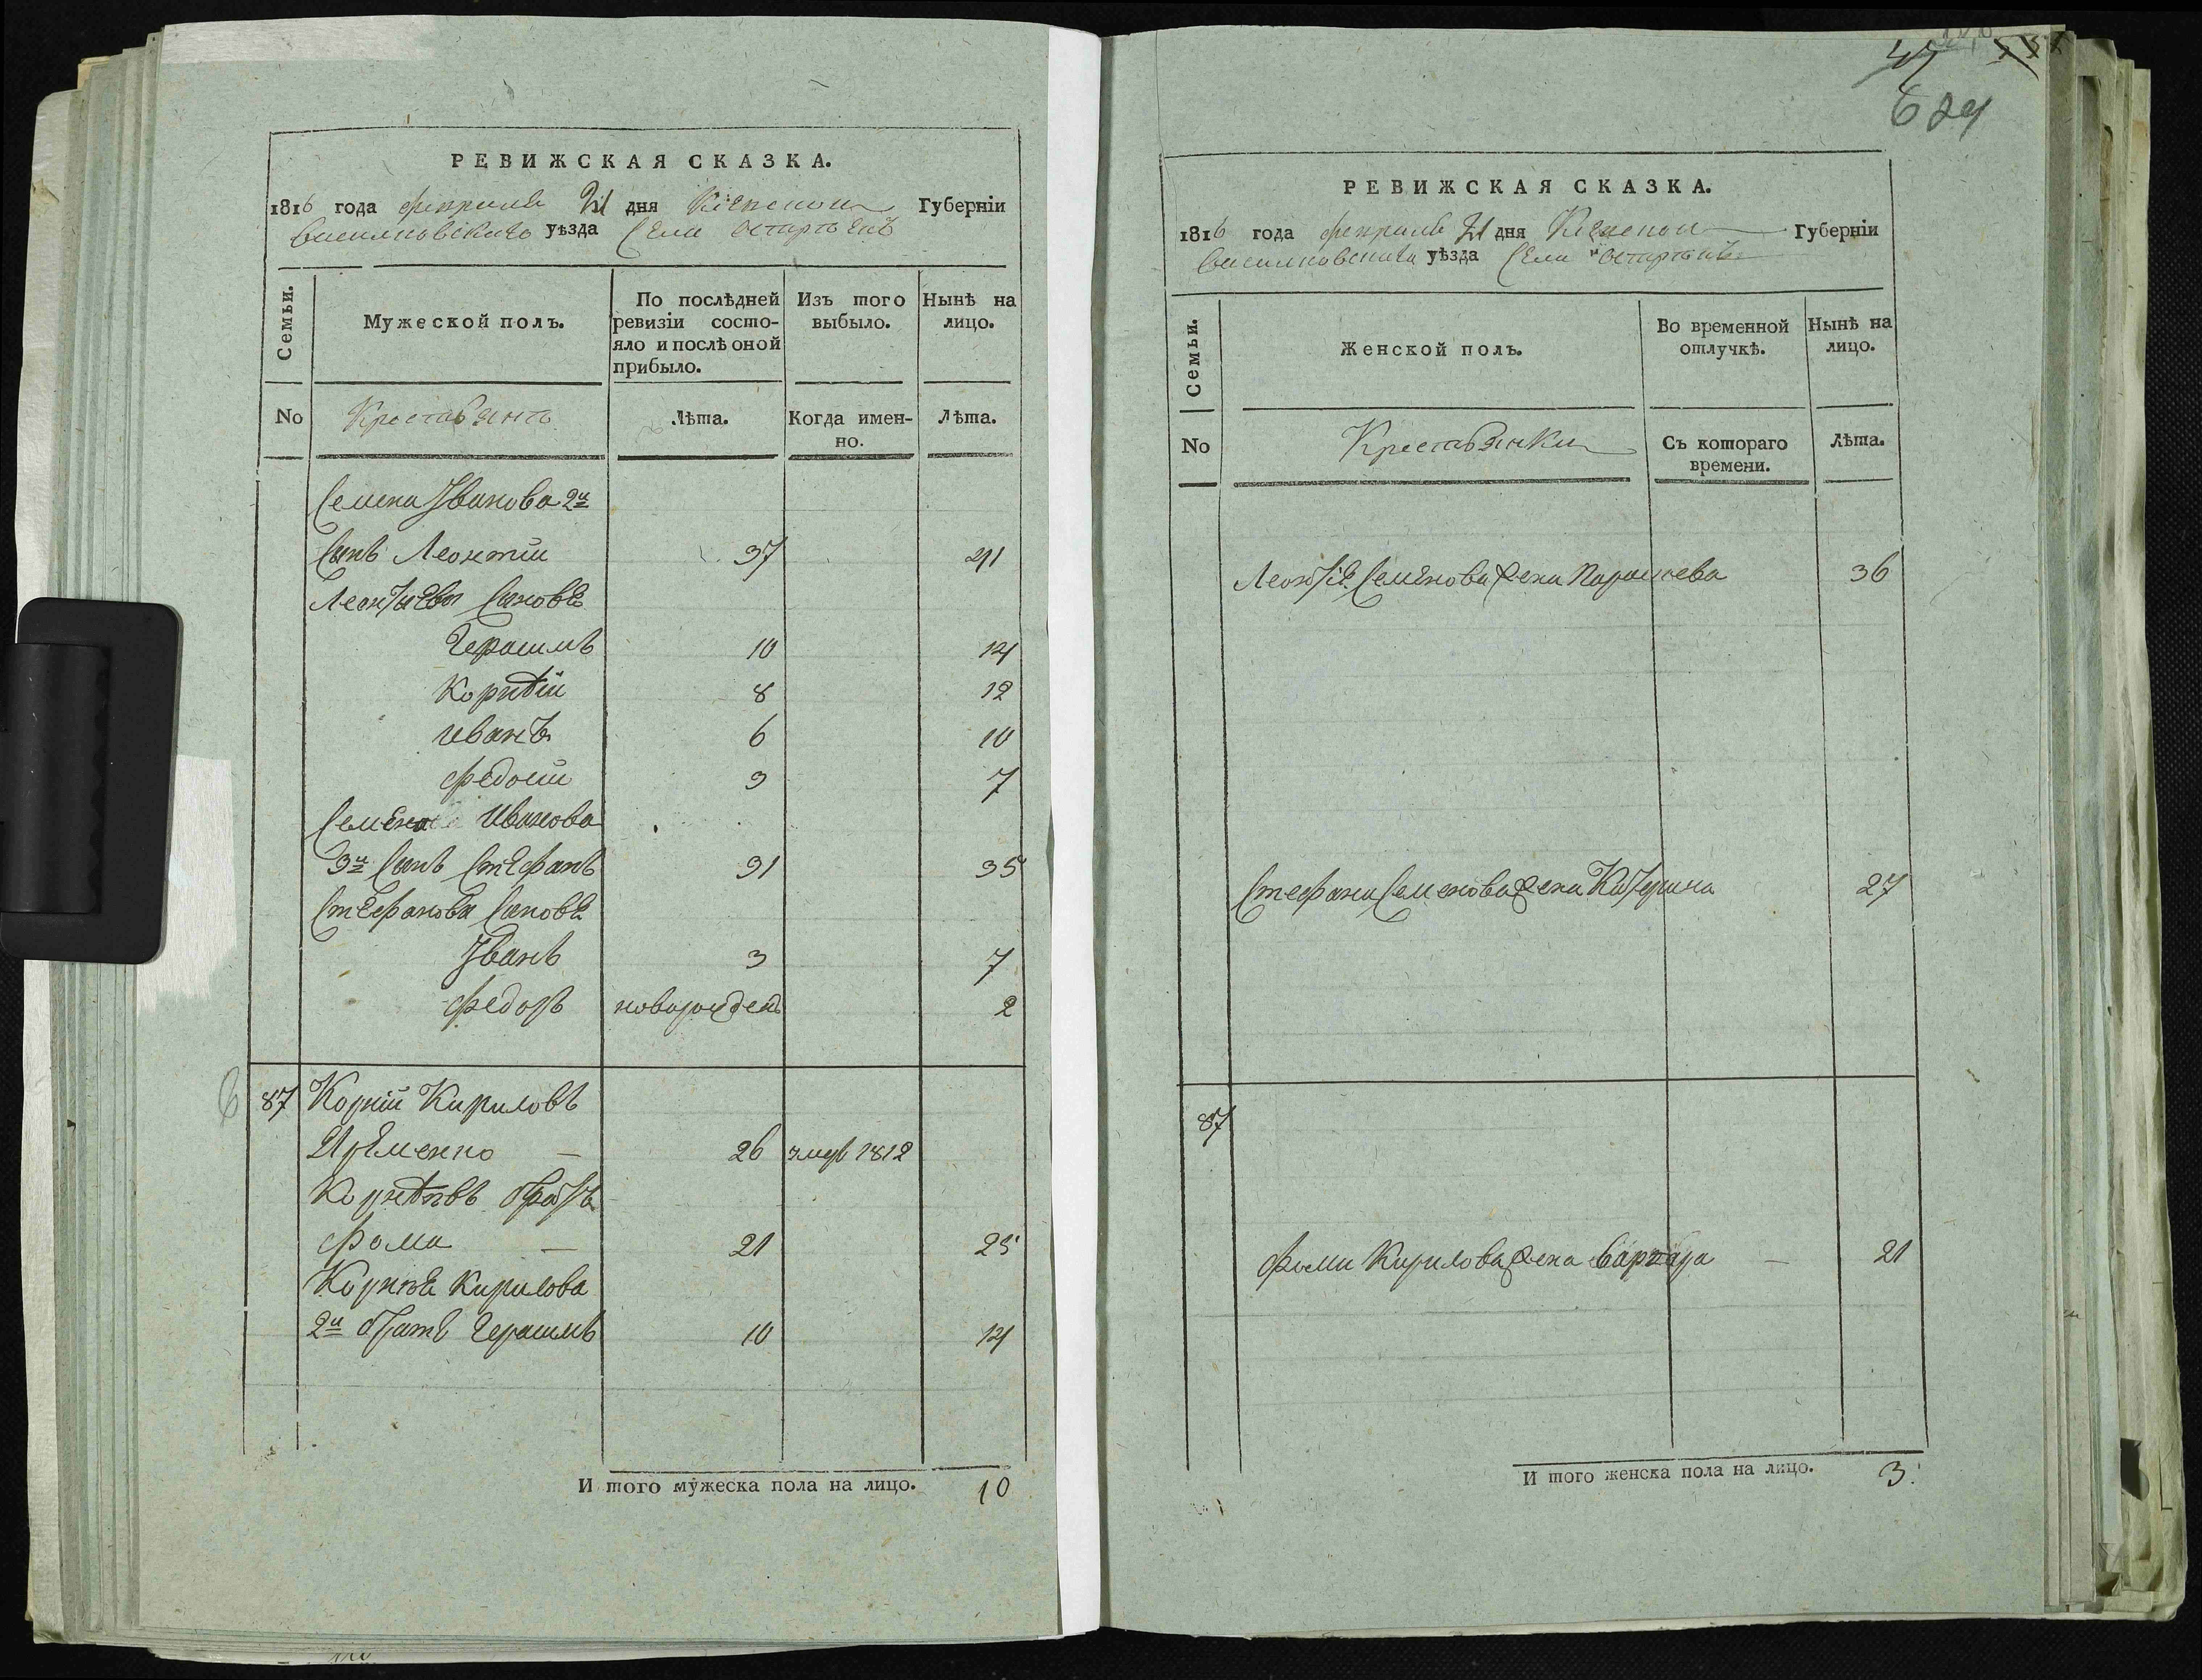 РЕВИЖСКАЯ СКАЗКА.
1816 года февраля 21 дня Кіевской Губерніи
Васильковскаго уѣзда Села
Семьи.
Мужеской полъ.
По послѣдней ревизіи состояло и послѣ оной прибыло.
Изъ того выбыло.
Нынѣ на лицо.
No Крестьянъ Лѣта. Когда именно. Лѣта.
Семена Іванова 2й
Сынъ Леонтій 37 41
Леонтіевы Сыновѣ
Герасимъ 10 14
Корнѣй 8 12
Иванъ 6 10
Федосій 3 7
Семена Иванова
3й Сынъ Стефанъ 31 35
Стефанова Сыновѣ
Іванъ 3 7
Федоръ новорожденъ 2
87 Корній Кириловъ
Яременко — 26 умре 1812
Корнѣевъ братъ
Фома — 21 25
Корнѣя Кирилова
2й братъ Герасимъ 10 14
И того мужеска пола на лицо. 10
47
624
РЕВИЖСКАЯ СКАЗКА.
1816 года февраля 21 дня Кіевской Губерніи
Васильковскаго уѣзда Села
Семьи.
Женской полъ.
Во временной отлучкѣ.
Нынѣ на лицо.
No Крестьянки Съ котораго времени. Лѣта.
Леонтія Семенова жена Параскева 36
Стефана Семенова жена Катерина 27
87
Фомы Кирилова жена Варвара — 21
И того женска пола на лицо. 3.